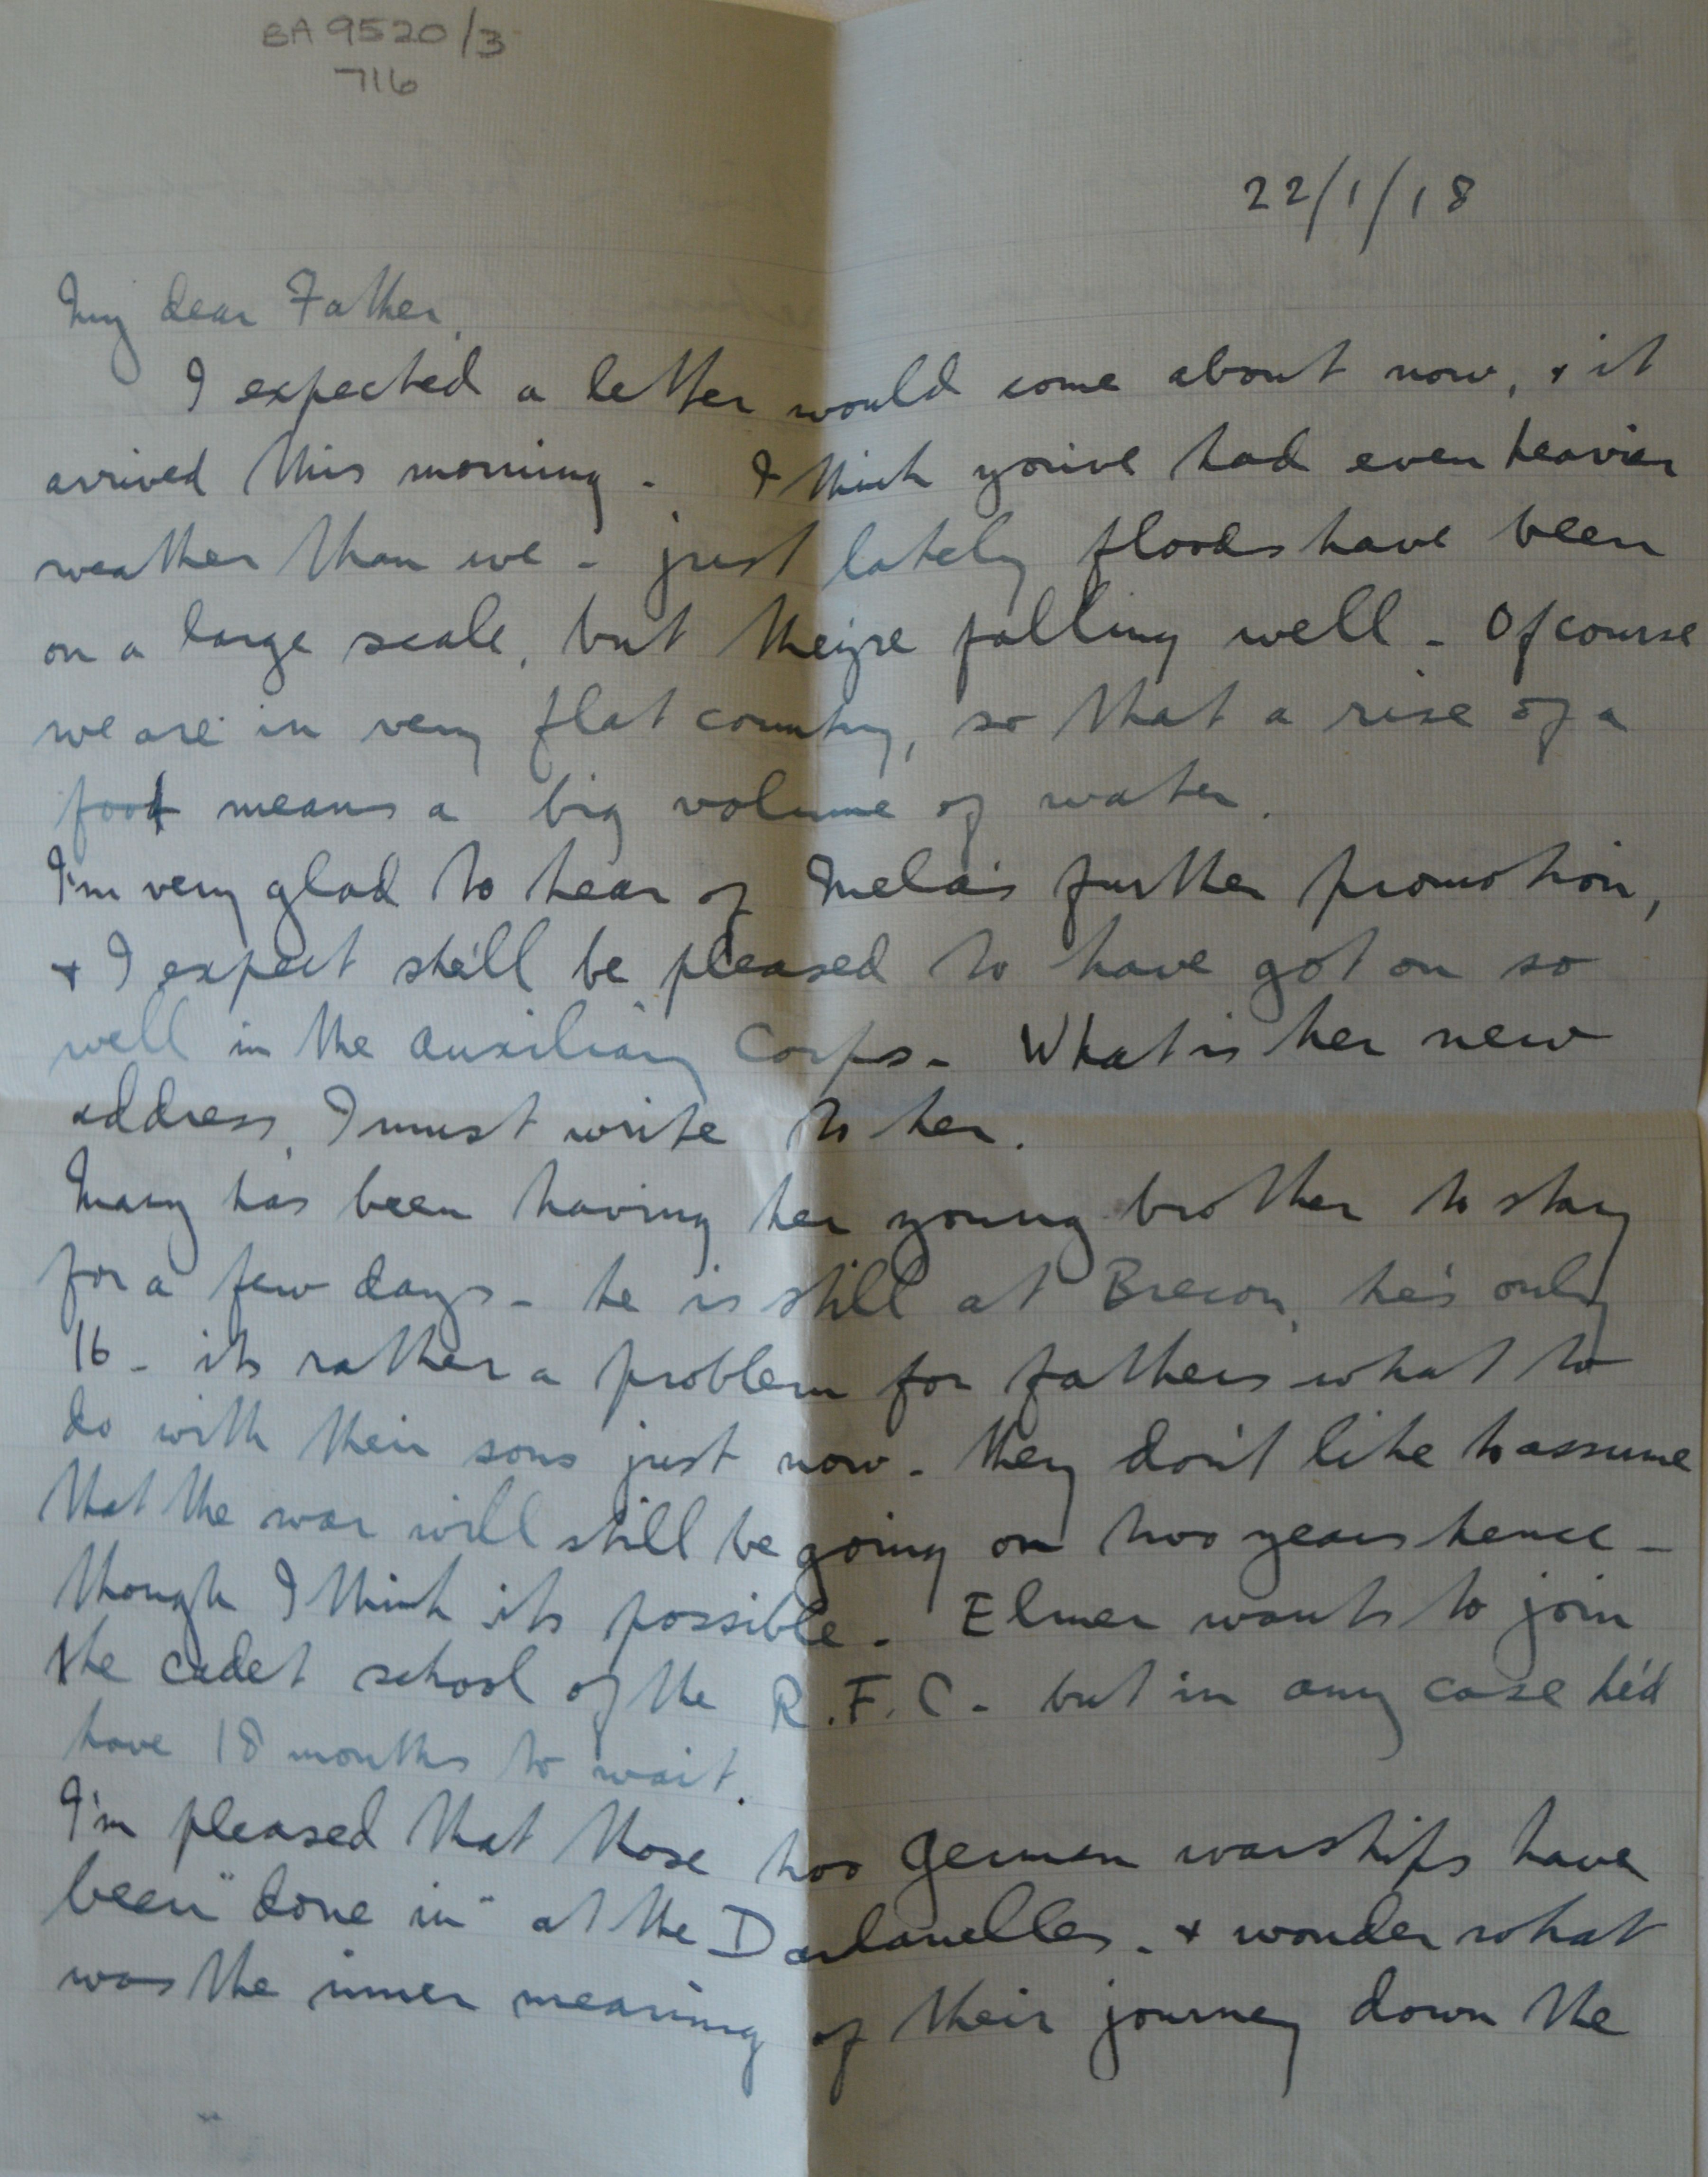 BA 9520/3
716
22/1/18
My dear Father,
I expected a letter would come about now, & it
arrived this morning. I think you've had even heavier
weather than we - just lately floods have been
on a large scale, but they're falling well - Of course
we are in very flat country, so that a rise of a
foot means a big volume of water.
I'm very glad to hear of Mela's further promotion,
& I expect she'll be pleased to have got on so
well in the Auxiliary Corps - What is her new
address, I must write to her.
Mary has been having her young brother to stay
for a few days - he is still at Brecon, he's only
16 - its rather a problem for fathers what to
do with their sons just now - they don't like to assume
that the war will still be going on two years hence -
though I think its possible - Elmer wants to join
the cadet school of the R.F.C - but in any case he'd
have 18 months to wait.
I'm pleased that those two German warships have
been "done in" at the Dardanelles - & wonder what
was the inner meaning of their journey down the